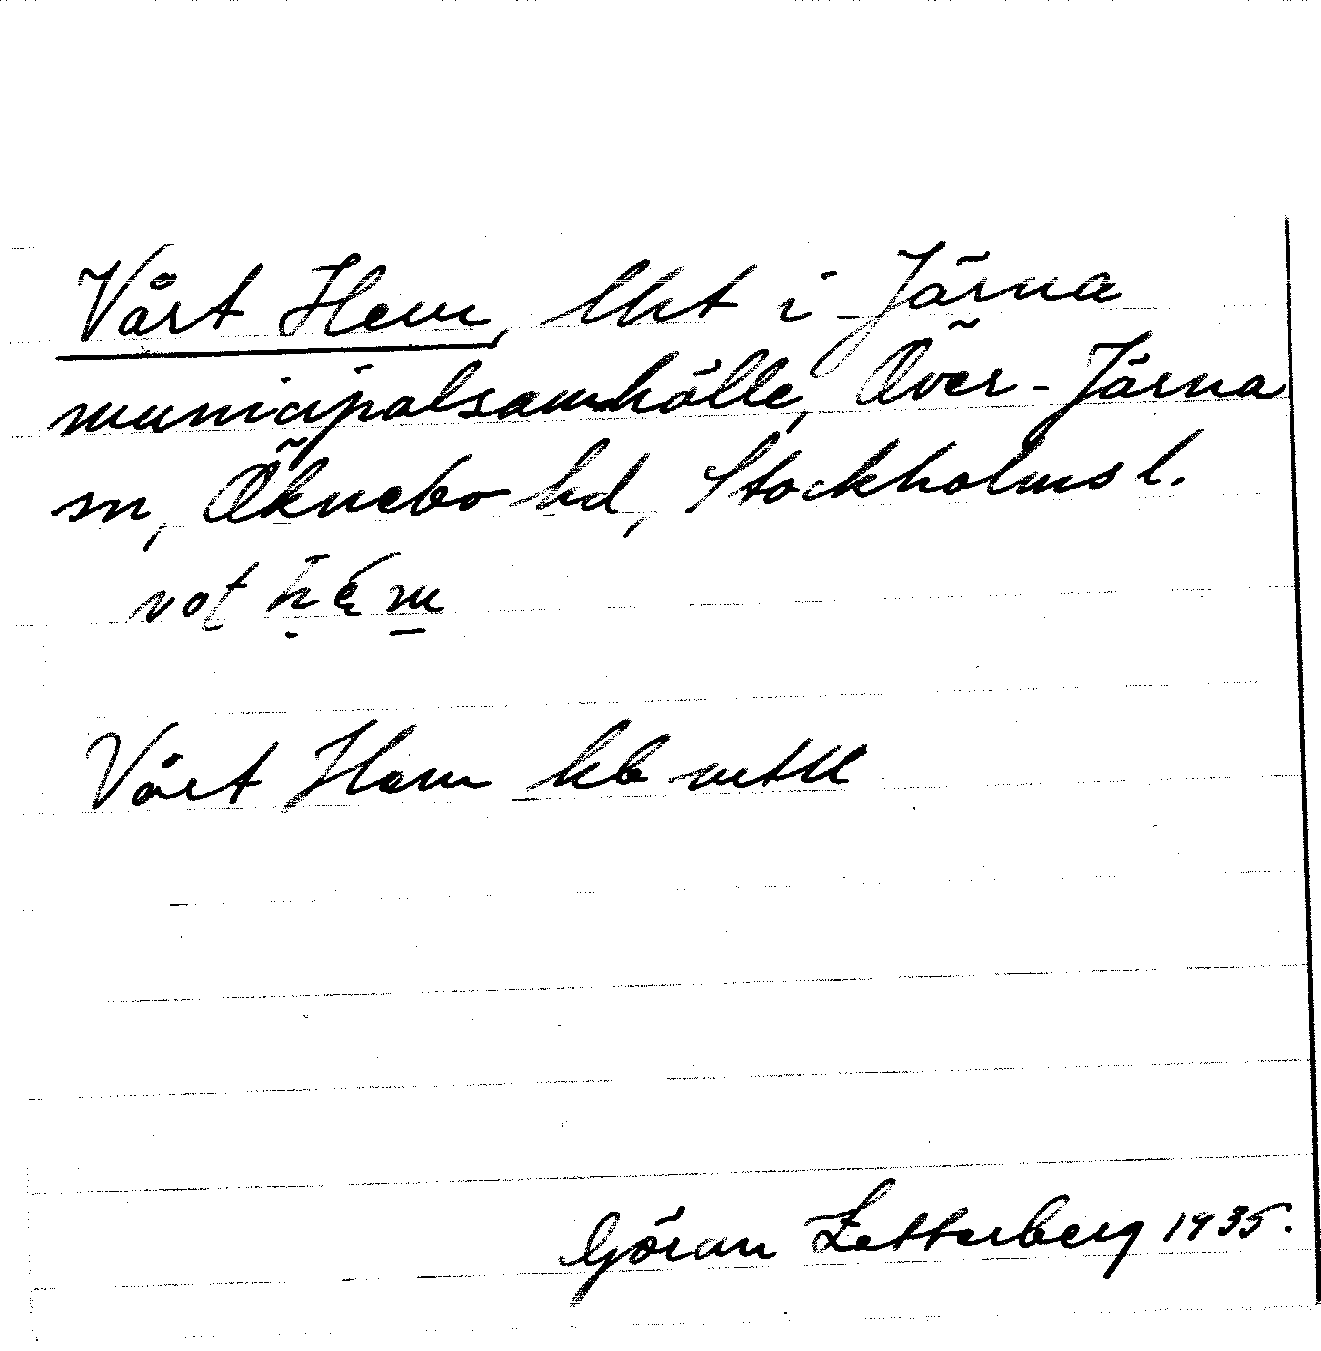 Vårt Hem, lht i Järna
municipalsamhälle, Över-Järna
sn, Öknebo hd, Stockholms l.
Vårt Hem kb mtll
Göran Zetterberg 1935.